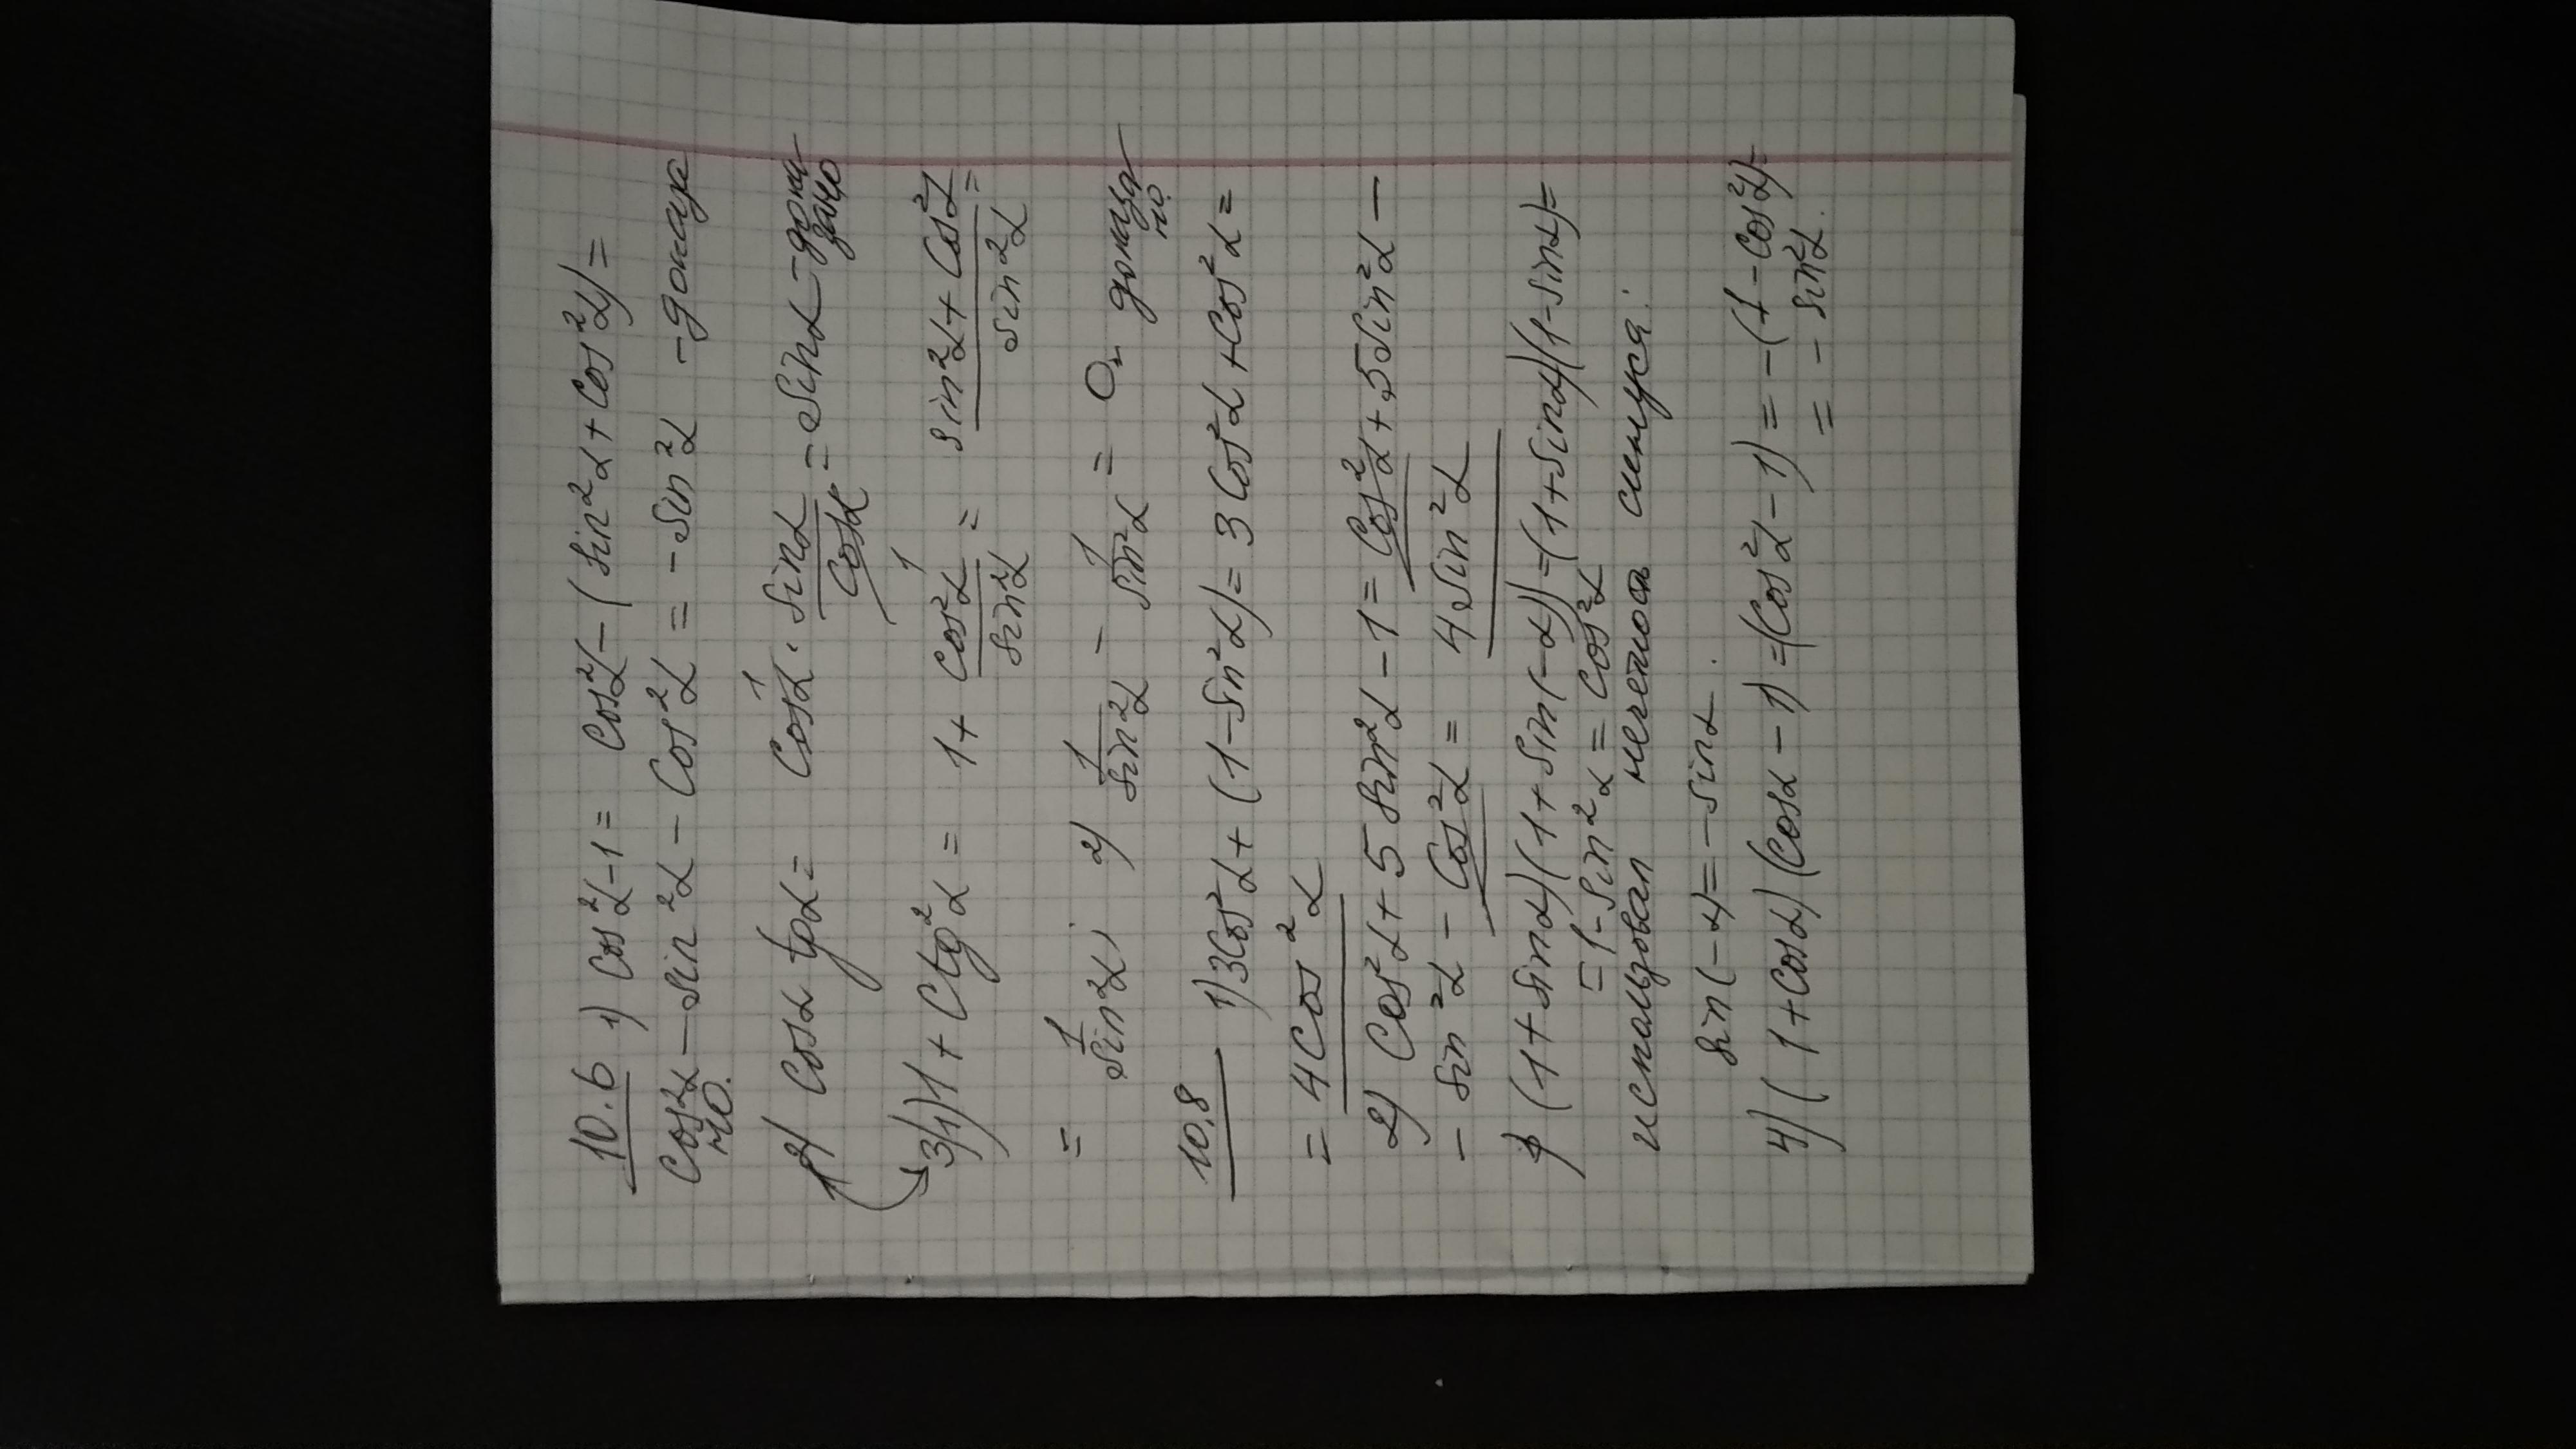 10.6 1) Cos²α-1= Cos²α-(sin²α+Cos²α)=
Cos²α-sin²α-Cos²α=-sin²α -доказа
но.
2) Cosα tgα= Cosα·sinα/Cosα=sinα-дока
зано
3) 1) 1+Ctg²α= 1+Cos²α/sin²α=sin²α+Cos²α/sin²α=
= 1/sin²α; 2) 1/sin²α - 1/sin²α = 0 - доказа
но
10.8 1) 3Cos²α+(1-sin²α)=3Cos²α+Cos²α=
= 4Cos²α
2) Cos²α+5sin²α-1=Cos²α+5sin²α-
-sin²α-Cos²α= 4sin²α
(1+sinα)(1+sin(-α))=(1+sinα)(1-sinα)=
=1-sin²α=Cos²α
использовал нечетност синуса:
sin(-α)=-sinα.
4) (1+Cosα)(Cosα-1)=(Cos²α-1)=-(1-Cos²α)=
= -sin²α.